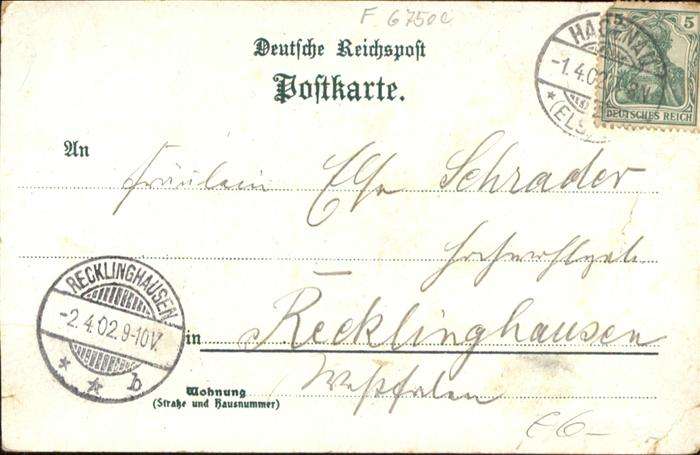 F 6750c
Deutsche Reichspost
Postkarte.
HAGENAU
-1.4.02. 8V.
(ELS.)
5
DEUTSCHES REICH
An
Fräulein Else Schrader
RECKLINGHAUSEN
-2.4.02.9-10V.
* * b
in Recklinghausen
Westfalen
Wohnung
(Straße und Hausnummer)
€6-